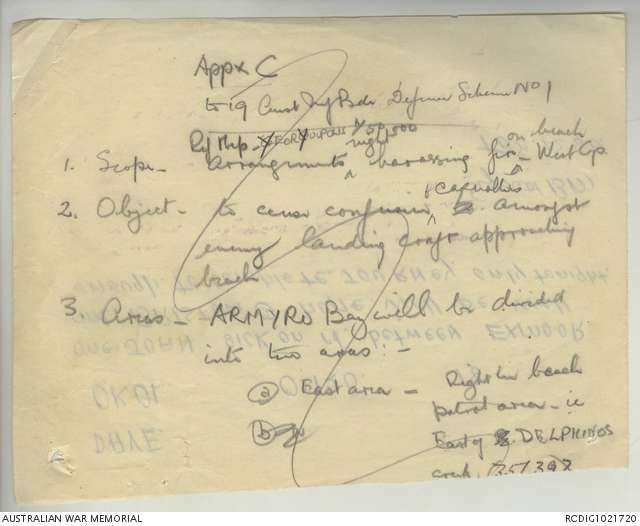 Appx C
to 19 Aust Inf Bde Defence Scheme No 1
Ref Map 1/50,000
on beach
1. Scope - Arrangements night harassing fire - West Gp.
+ casualties
2. Object - to cause confusion amongst
enemy landing craft approaching
beach
3. Areas - ARMYRO Bay will be divided
into two areas :-
(a) East area - Right hr beach
patrol area - ie
East of DELPHINOS
creek 351398
(b)
AUSTRALIAN WAR MEMORIAL
RCDIG1021720